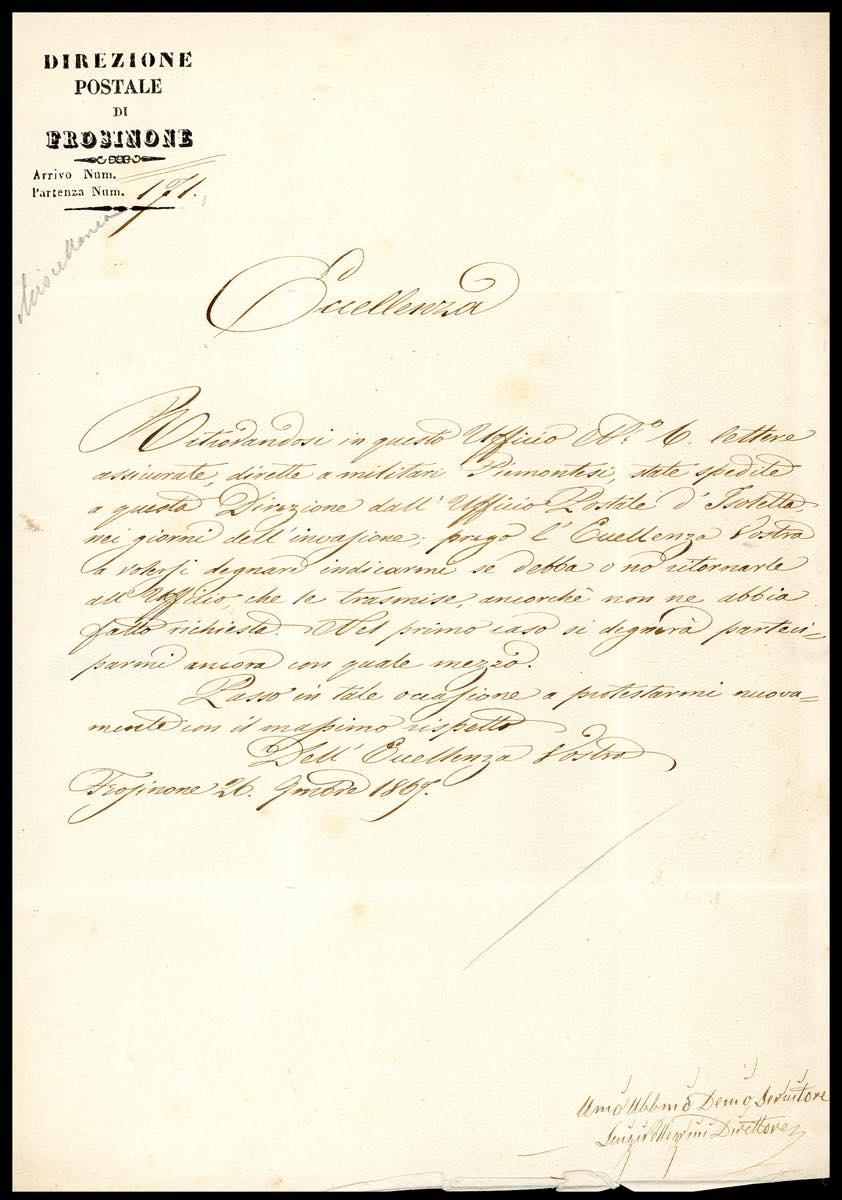 DIREZIONE
POSTALE
DI
FROSINONE
Arrivo Num.
Partenza Num. 171.
Miscellanea
Eccellenza
Ritrovandosi in questo Ufficio N.º 6. lettere
assicurate, dirette a militari Piemontesi, state spedite
a questa Direzione dall' Ufficio Postale d' Isoletta
nei giorni dell' invasione; prego l' Eccellenza Vostra
a volersi degnare indicarmi se debba o nò ritornarle
all' Uffilio che le trasmise, ancorchè non ne abbia
fatto richiesta. Nel primo caso si degnerà parteci=
parmi ancora con quale mezzo.
Passo in tale occasione a protestarmi nuova=
mente con il massimo rispetto
Dell' Eccellenza Vostra
Frosinone 26. 9mbre 1867.
Umo Ubbmo Devmo Servitore
Luigi Direttore